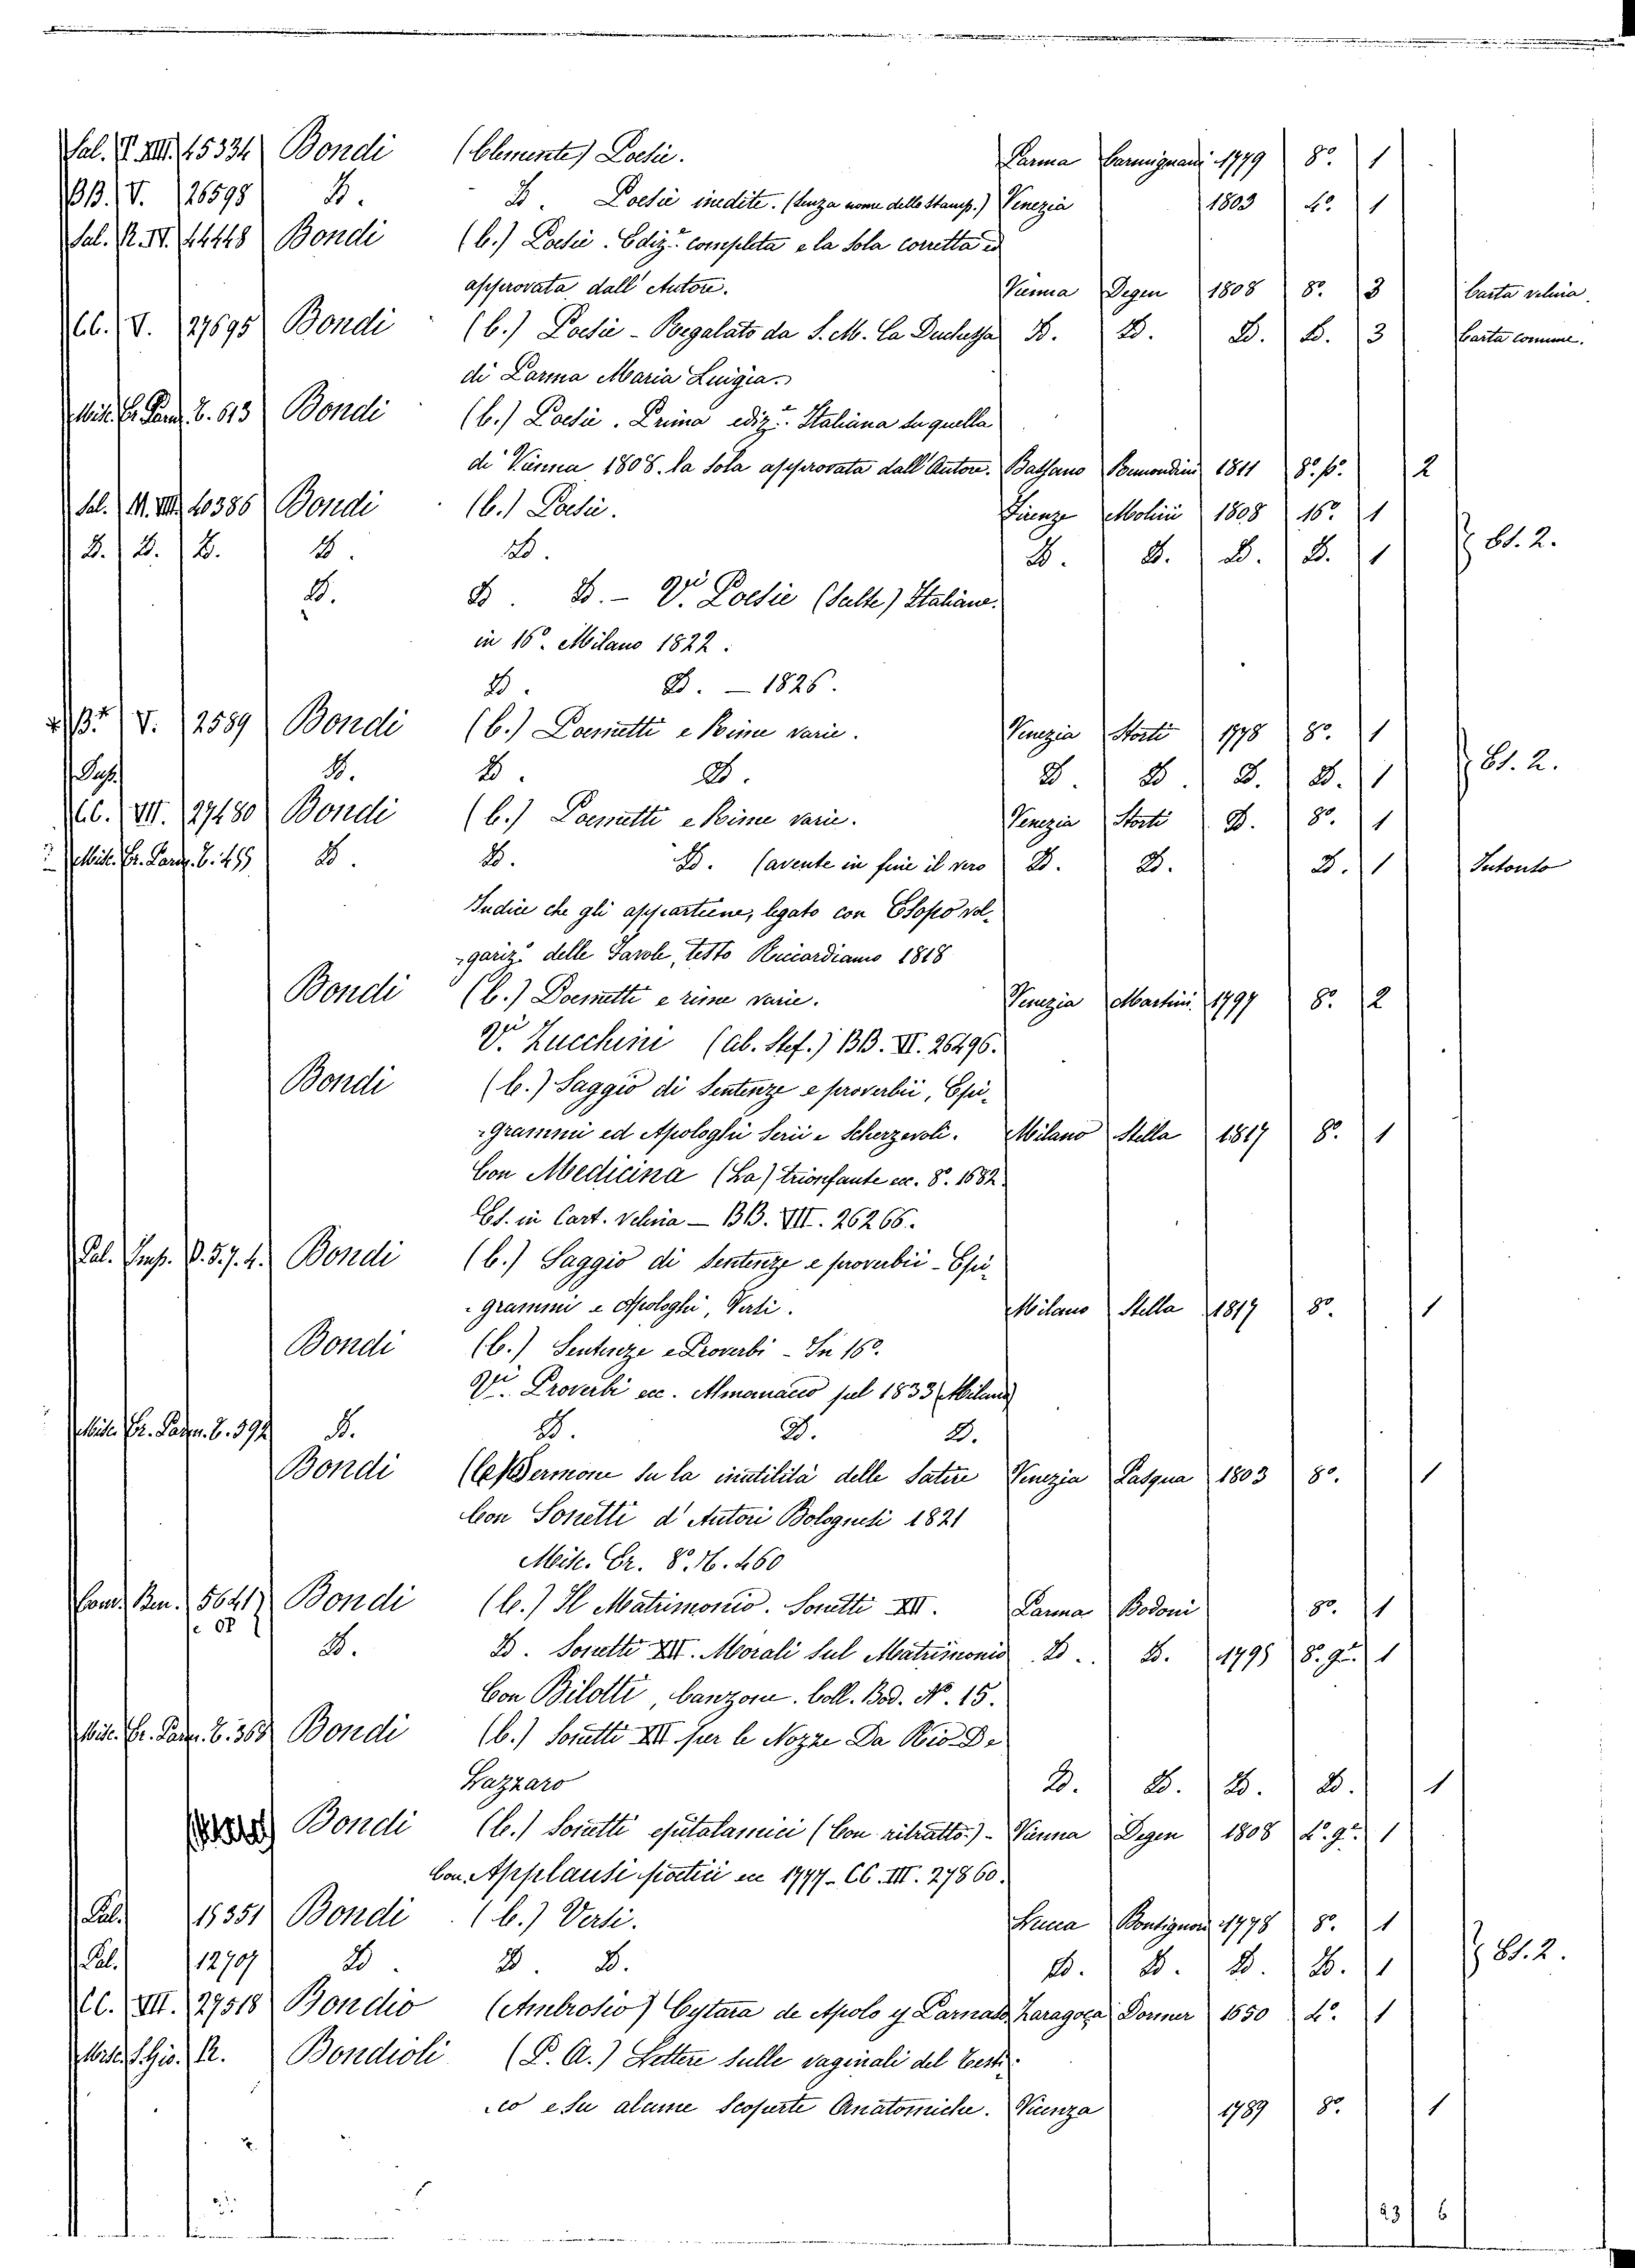 Sal. V. VIII. 15334 Bondi (Clemente) Poesie. Parma Carmignani 1779 8.º 1
BB. V. 26598 D. D. Poesie inedite. (Senza nome dello Stamp.) Venezia 1803 4.º 1
Sal. R. IV. 14448 Bondi (C.) Poesie. Ediz.e completa e la sola corretta ed
approvata dall'Autore. Vienna Degen 1808 8.º 3 Carta velina.
CC. V. 27695 Bondi (C.) Poesie - Regalato da S. M. La Duchessa D. D. D. D. 3 Carta comune.
di Parma Maria Luigia.
Misc. Er. Parm. 8. 613 Bondi (C.) Poesie. Prima ediz.e Italiana su quella
di Vienna 1808. la sola approvata dall'Autore. Bassano Remondini 1811 8.º p.º 2
Sal. M. VIII. 10386 Bondi (C.) Poesie. Firenze Molini 1808 16.º 1
D. D. D. D. D. D. D. D. D. 1 Es. 2.
D. D. D. - V.i Poesie (Scelte) Italiane.
in 16.º Milano 1822.
D. D. - 1826.
V. 2589 Bondi (C.) Poemetti e Rime varie. Venezia Storti 1778 8.º 1
Dup. D. D. D. D. D. D. D. 1 Es. 2.
CC. VII. 27480 Bondi (C.) Poemetti e Rime varie. Venezia Storti D. 8.º 1
Misc. Er. Parm. 8. 499 D. D. D. (avente in fine il vero D. D. D. 1 Intonso
Indice che gli appartiene, legato con Esopo vol-
-gariz.o delle Favole, testo Riccardiano 1818
Bondi (C.) Poemetti e rime varie. Venezia Martini 1799 8.º 2
V.i Zucchini (ab. Stef.) BB. VI. 26496.
Bondi (C.) Saggio di Sentenze e proverbii, Epi-
-grammi ed Apologhi Serii e Scherzevoli. Milano Stella 1817 8.º 1
Con Medicina (La) trionfante ec. 8.º 1682
Es. in Cart. Velina - BB. VII. 26266.
Pal. Imp. P. 5. 7. 4. Bondi (C.) Saggio di Sentenze e proverbii - Epi-
-grammi e Apologhi, Versi. Milano Stella 1817 8.º 1
Bondi (C.) Sentenze e Proverbi - In 16.º
V.i Proverbi ec. Almanacco pel 1833 Milano
Misc. Er. Parm. 8. 392 D. D. D. D.
Bondi (C.) Sermone su la inutilità delle Satire Venezia Pasqua 1803 8.º 1
Con Sonetti d'Autori Bolognesi 1821
Misc. Er. 8.º N. 460
Com. Ben. 5641 Bondi (C.) Il Matrimonio. Sonetti XII. Parma Bodoni 8.º 1
D. D. Sonetti XII. Morali sul Matrimonio D. D. 1795 8.º g.e 1
Con Bilotti, Canzone. Coll. Bod. Nº. 15.
Misc. Er. Parm. 8. 369 Bondi (C.) Sonetti XII per le Nozze Da Rio De
Lazzaro D. D. D. D. 1
Bondi (C.) Sonetti epitalamici (Con ritratto.) - Vienna Degen 1808 4.º g.e 1
Con Applausi poetici ec 1777 - CC. III. 27860.
Pal. 15351 Bondi (C.) Versi. Lucca Bonsignori 1778 8.º 1
Pal. 12707 D. D. D. D. D. D. D. 1 Es. 2.
CC. VII. 27518 Bondio (Ambrosio) Cytara de Apolo y Parnaso Zaragoza Dormer 1650 4.º 1
Misc. S. Gio. R. Bondioli (P. A.) Lettere sulle vaginali del Testi-
-co e su alcune Scoperte Anatomiche. Vicenza 1789 8.º 1
23 6